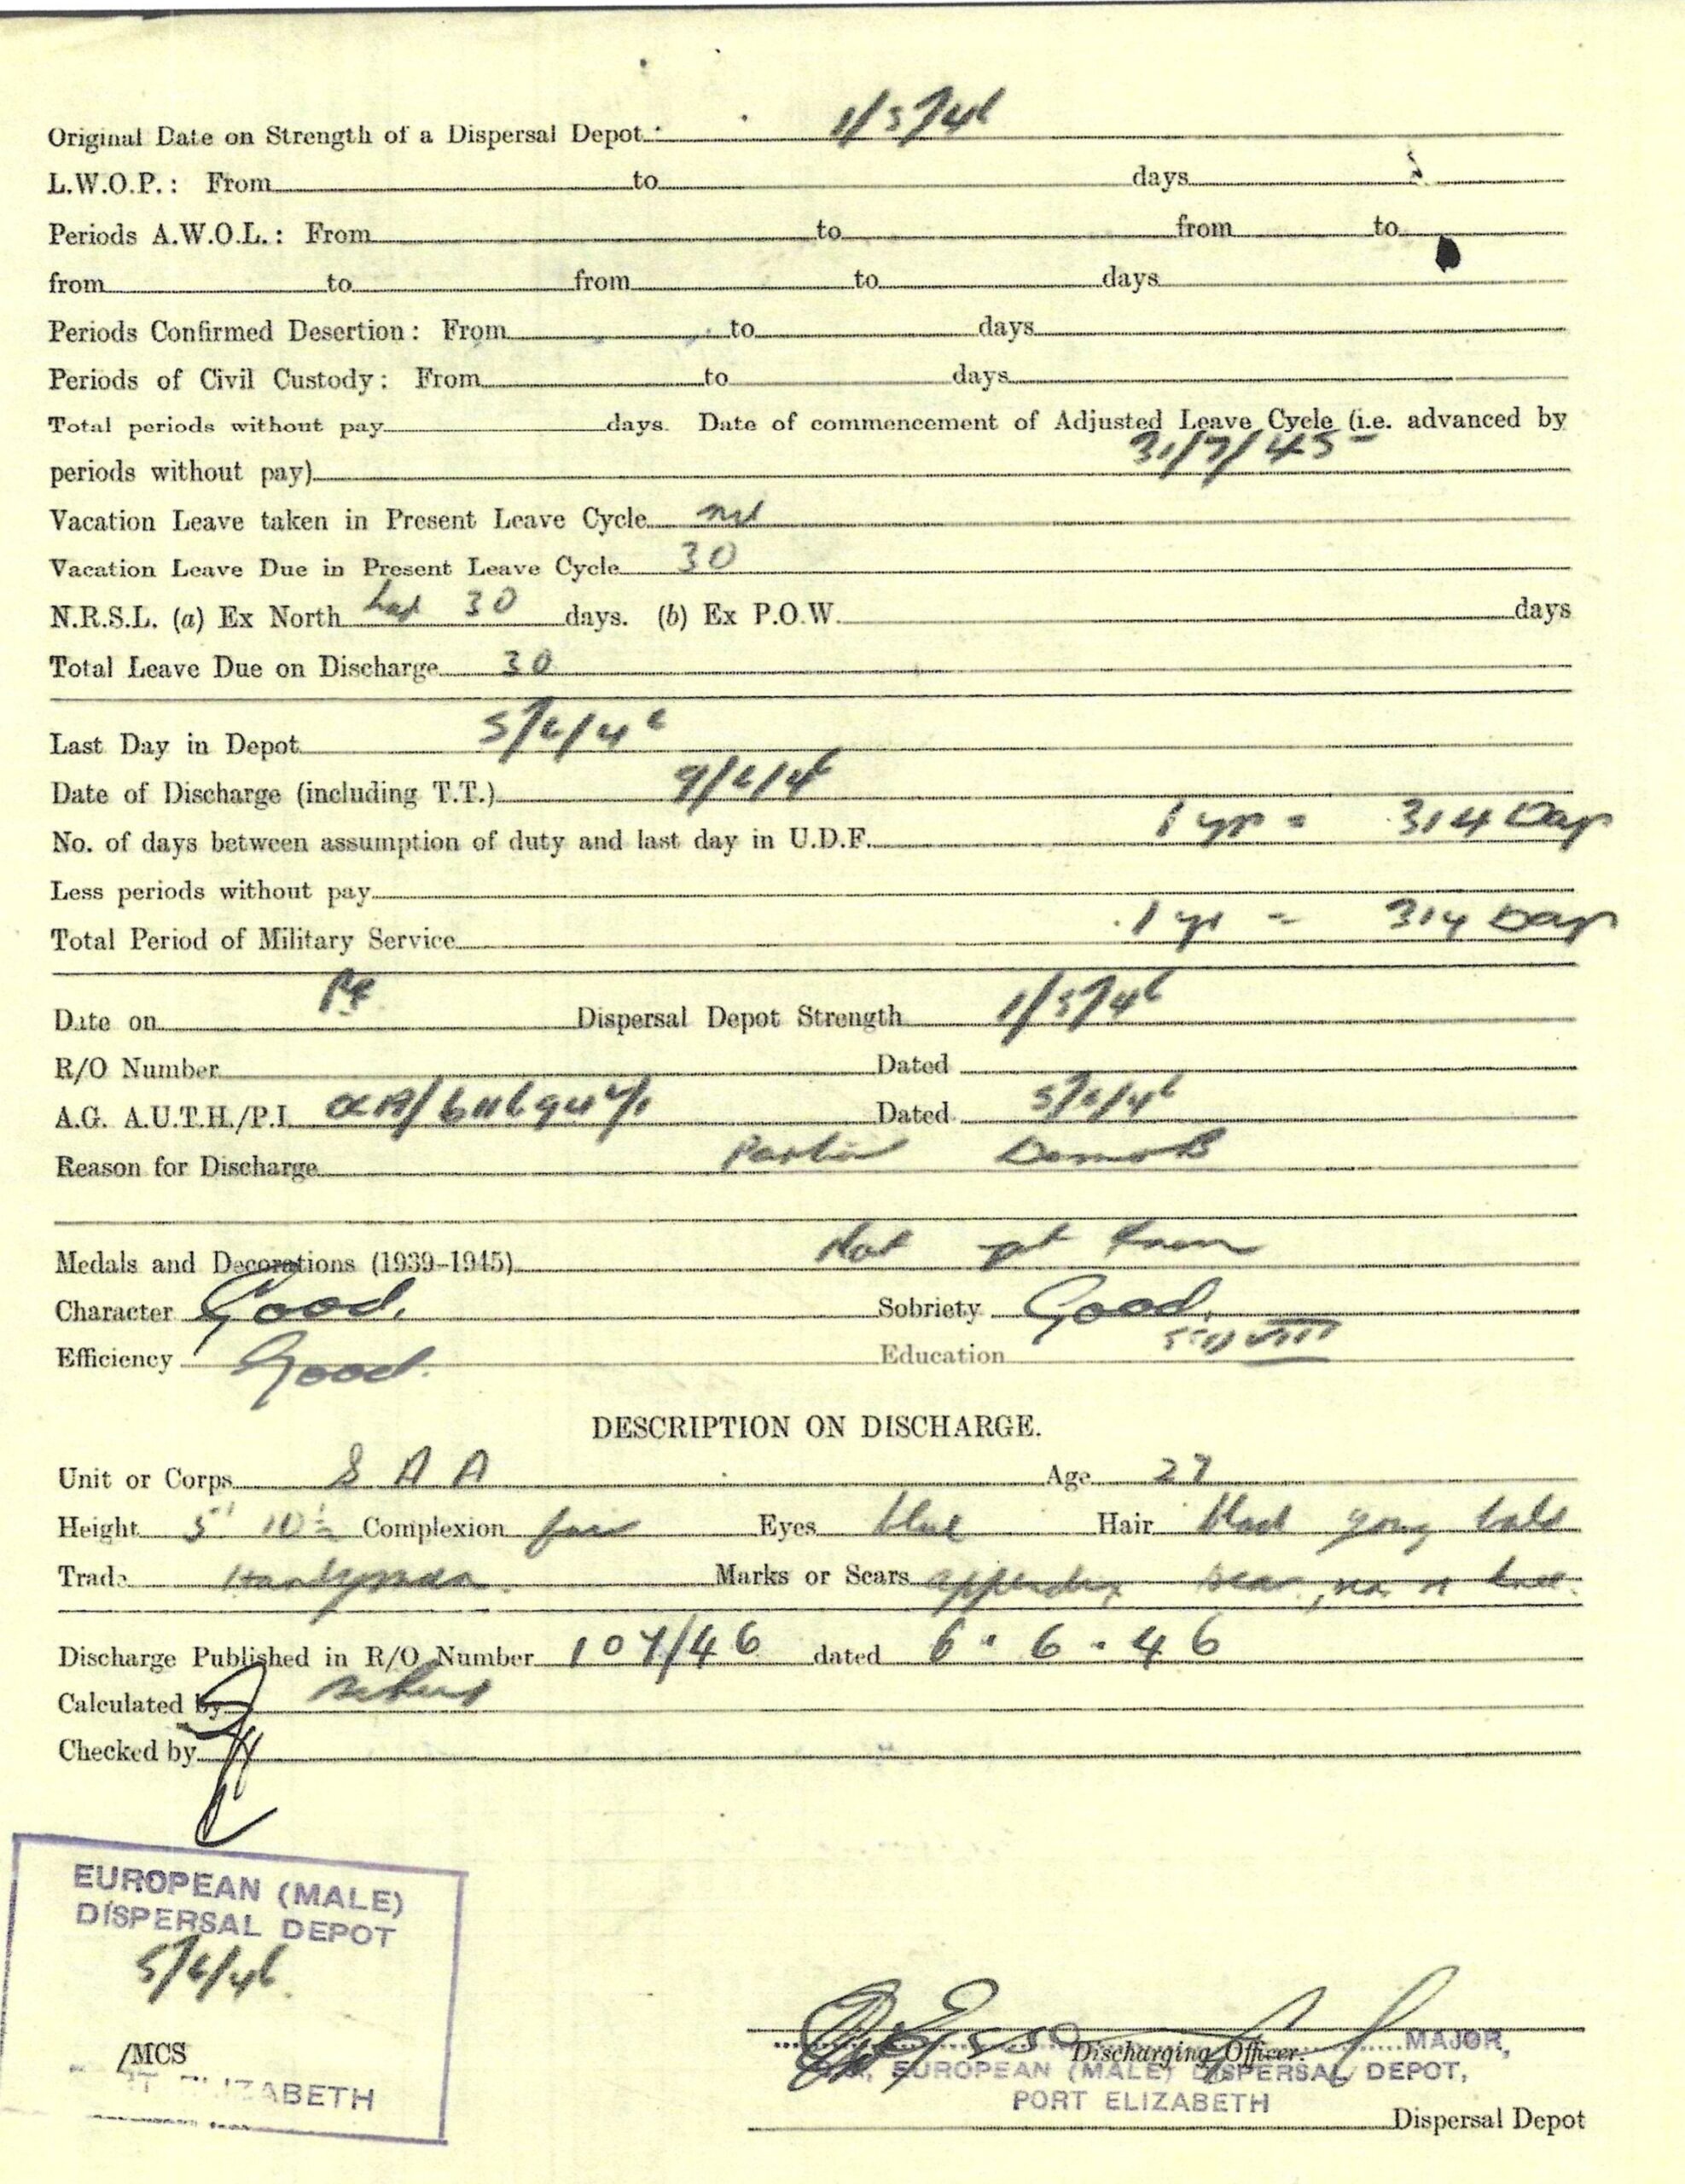 Original Date on Strength of a Dispersal Depot 1/5/46
L.W.O.P.: From to days
Periods A.W.O.L.: From to from to
from to from to days
Periods Confirmed Desertion: From to days
Periods of Civil Custody: From to days
Total periods without pay days. Date of commencement of Adjusted Leave Cycle (i.e. advanced by
periods without pay) 31/7/45
Vacation Leave taken in Present Leave Cycle nil
Vacation Leave Due in Present Leave Cycle 30
N.R.S.L. (a) Ex North had 30 days. (b) Ex P.O.W. days
Total Leave Due on Discharge 30
Last Day in Depot 5/6/46
Date of Discharge (including T.T.) 9/6/46
No. of days between assumption of duty and last day in U.D.F. 1 yr = 314 Days
Less periods without pay
Total Period of Military Service 1 yr = 314 Days
Date on PE Dispersal Depot Strength 1/5/46
R/O Number Dated
A.G. A.U.T.H./P.I. Dated 5/6/46
Reason for Discharge Demob
Medals and Decorations (1939-1945) Not yet known
Character Good. Sobriety Good.
Efficiency Good. Education VIII
DESCRIPTION ON DISCHARGE.
Unit or Corps S A A Age 27
Height 5' 10½ Complexion fair Eyes blue Hair black going bald
Trade Handyman. Marks or Scars appendix scar, knee.
Discharge Published in R/O Number 107/46 dated 6.6.46
Calculated by
Checked by
EUROPEAN (MALE)
DISPERSAL DEPOT
5/6/46.
/MCS
ELIZABETH
Discharging Officer. MAJOR,
EUROPEAN (MALE) DISPERSAL DEPOT,
PORT ELIZABETH
Dispersal Depot